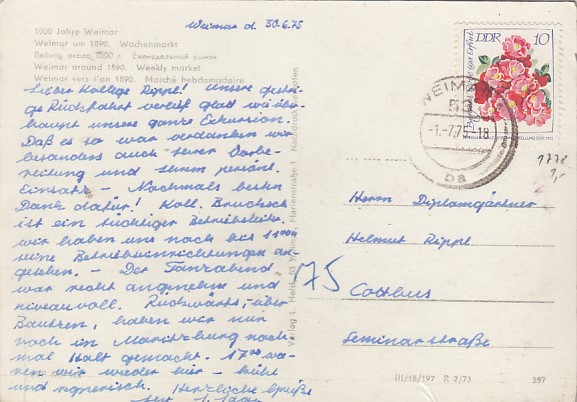 Weimar d. 30.6.75
1000 Jahre Weimar
Weimar um 1890. Wochenmarkt
Веймар около 1890 г. Еженедельный рынок
Weimar around 1890. Weekly market
Weimar vers l'an 1890. Marché hebdomadaire
Lieber Kollege Rippl! Unsere gestrige
Rückfahrt verlief glatt wie überhaupt
unsere ganze Exkursion.
Daß es so war verdanken wir
besonders auch seiner Vorbereitung
und seinem persönl.
Einsatz – Nochmals besten
Dank dafür! Koll.
ist ein tüchtiger Betriebsleiter
wir haben uns noch bis
seine Betriebseinrichtungen angesehen.
– Der Tanzabend
war recht angenehm und
niveauvoll. Rückwärts, über
Bautzen, haben wir nur
noch in Moritzburg noch
mal Halt gemacht. 17 waren
wir wieder hier – kühl
und regnerisch. Herzliche Grüße
DDR 10
WEIMAR
53
-1.-7.75-18
ba
1778
Herrn Diplomgärtner
Helmut Rippl
75
Cottbus
Seminarstraße
III/18/197 R 2/73
397